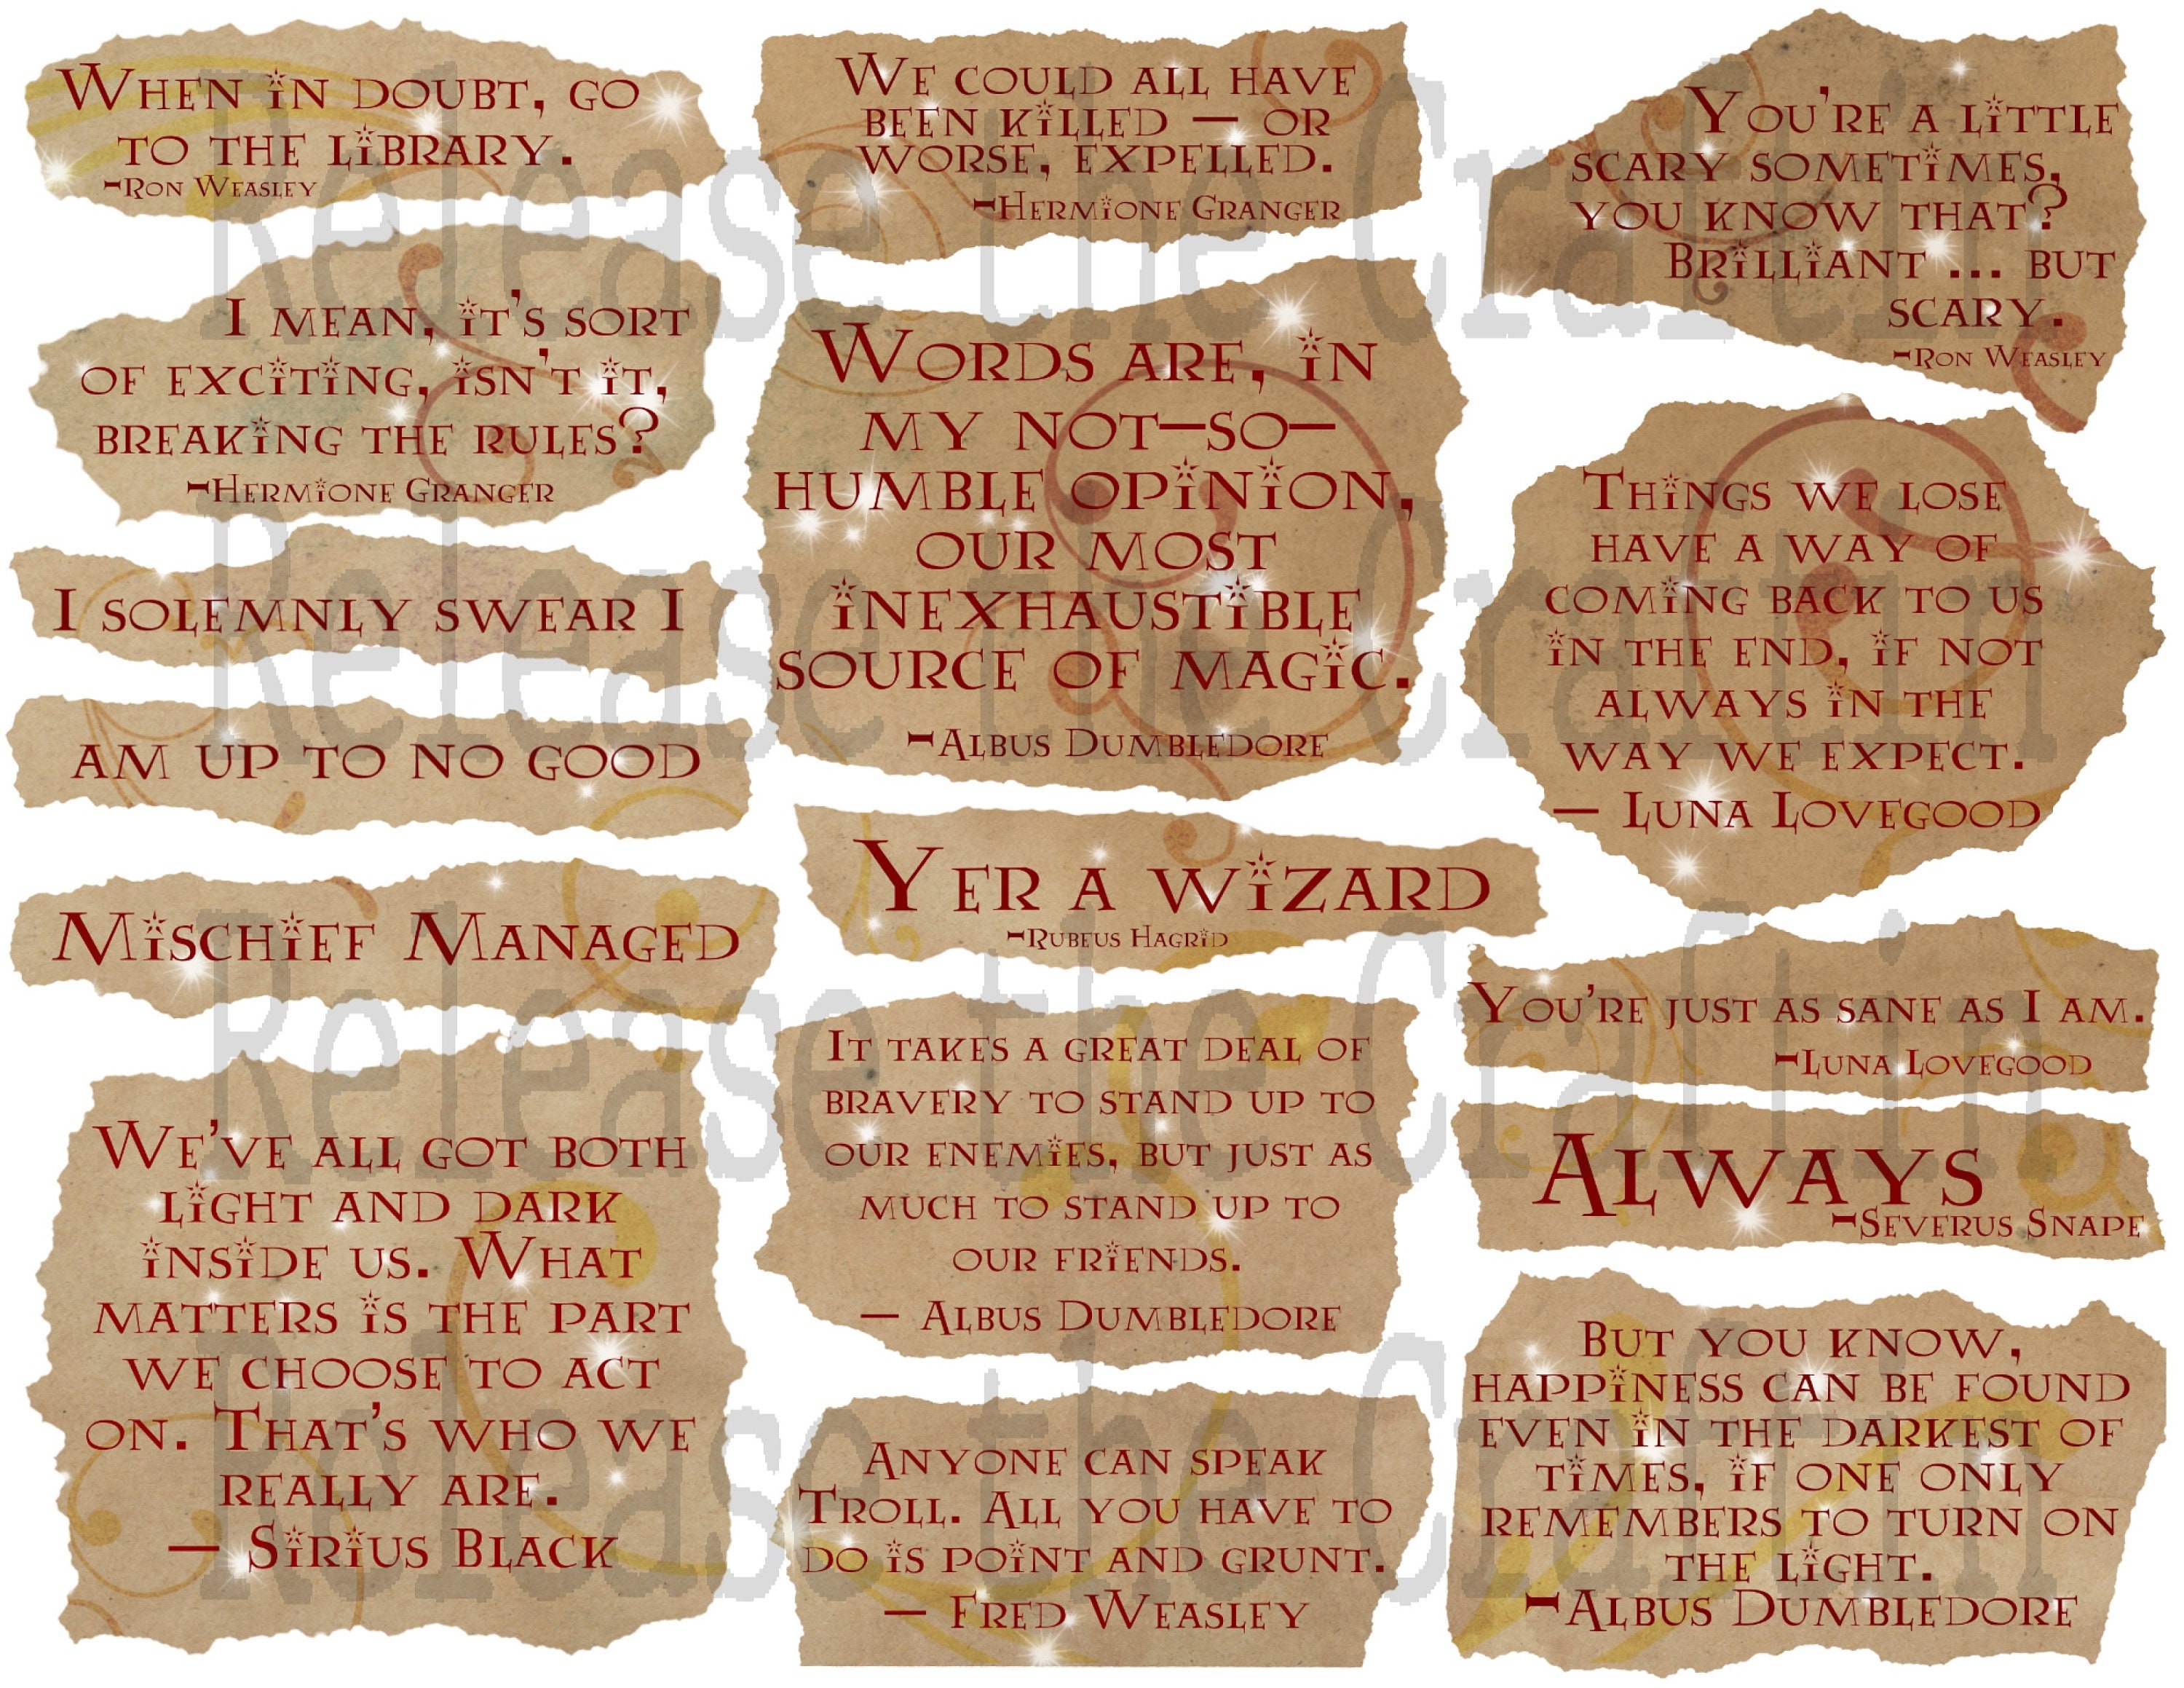 When in doubt, go
to the library.
-Ron Weasley
I mean, it's sort
of exciting, isn't it,
breaking the rules?
-Hermione Granger
I solemnly swear I
am up to no good
Mischief Managed
We've all got both
light and dark
inside us. What
matters is the part
we choose to act
on. That's who we
really are.
— Sirius Black
We could all have
been killed — or
worse, expelled.
-Hermione Granger
Words are, in
my not-so-
humble opinion,
our most
inexhaustible
source of magic.
-Albus Dumbledore
Yer a wizard
-Rubeus Hagrid
It takes a great deal of
bravery to stand up to
our enemies, but just as
much to stand up to
our friends.
— Albus Dumbledore
Anyone can speak
Troll. All you have to
do is point and grunt.
— Fred Weasley
You're a little
scary sometimes,
you know that?
Brilliant ... but
scary.
-Ron Weasley
Things we lose
have a way of
coming back to us
in the end, if not
always in the
way we expect.
— Luna Lovegood
You're just as sane as I am.
-Luna Lovegood
Always
-Severus Snape
But you know,
happiness can be found
even in the darkest of
times, if one only
remembers to turn on
the light.
-Albus Dumbledore
Release the Craftin
Release the Craftin
Release the Craftin
Release the Craftin